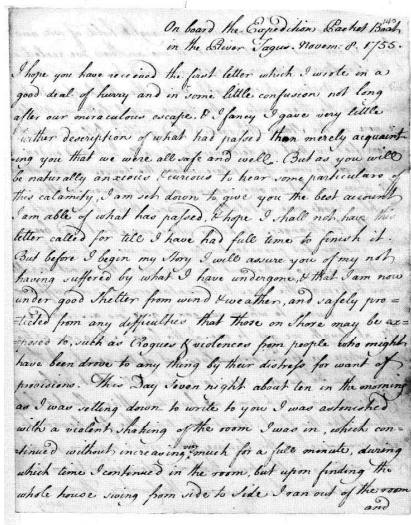 On board the Expedition Packet Boat
in the River Tagus. Novem: 8. 1755.
I hope you have received the first letter which I wrote in a
good deal of hurry and in some little confusion not long
after our miraculous escape. & I fancy I gave very little
further description of what had passed than merely acquaint
ing you that we were all safe and well. But as you will
be naturally anxious & curious to hear some particulars of
this calamity, I am set down to give you the best account
I am able of what has passed, & hope I shall not have this
letter called for till I have had full time to finish it.
But before I begin my Story I will assure you of my not
having suffered by what I have undergone, & that I am now
under good Shelter from wind & weather, and safely pro=
tected from any difficultys that those on Shore may be ex=
posed to, such as Rogues & violences from people who might
have been drove to any thing by their distress for want of
provisions. This Day Seven night about ten in the morning
as I was setting down to write to you I was astonished
with a violent shaking of the room I was in, which con=
tinued without increasing very much for a full minute, during
which time I continued in the room, but upon finding the
whole house swing from side to side I ran out of the room
and